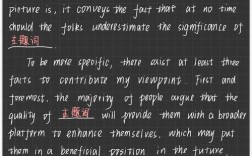 picture is, it conveys the fact that at no time
should the folks underestimate the significance of
主题词
To be more specific, there exist at least three
facts to contribute my viewpoint. First and
foremost, the majority of people argue that the
quality of 主题词 will provide them with a broader
platform to enhance themselves, which may put
them in a beneficial position in the future.